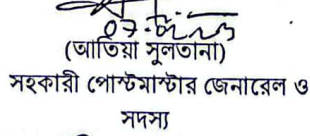 (আতিয়া সুলতানা)
সহকারী পোস্টমাস্টার জেনারেল ও
সদস্য